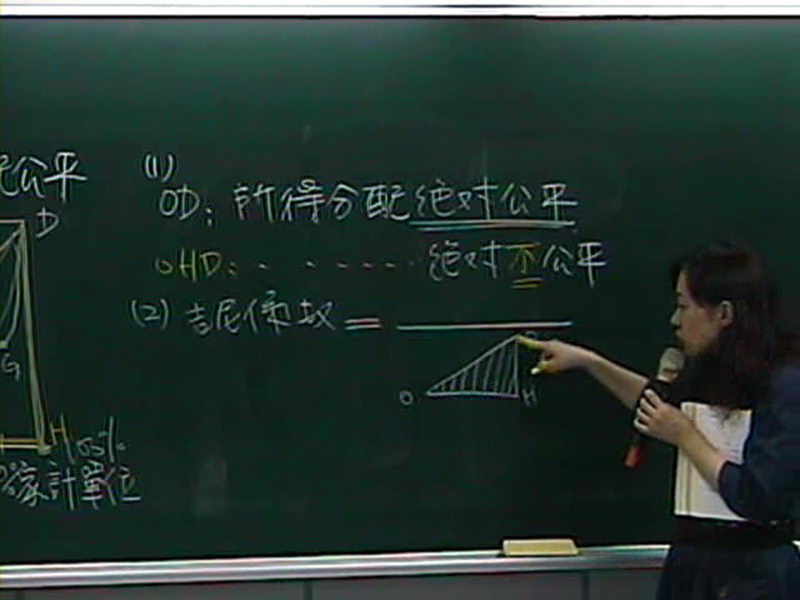 公平
D
G
H 100%
家計單位
(1)
OD: 所得分配絕对公平
OHD: 絕对不公平
(2) 吉尼係数 =
D
O H